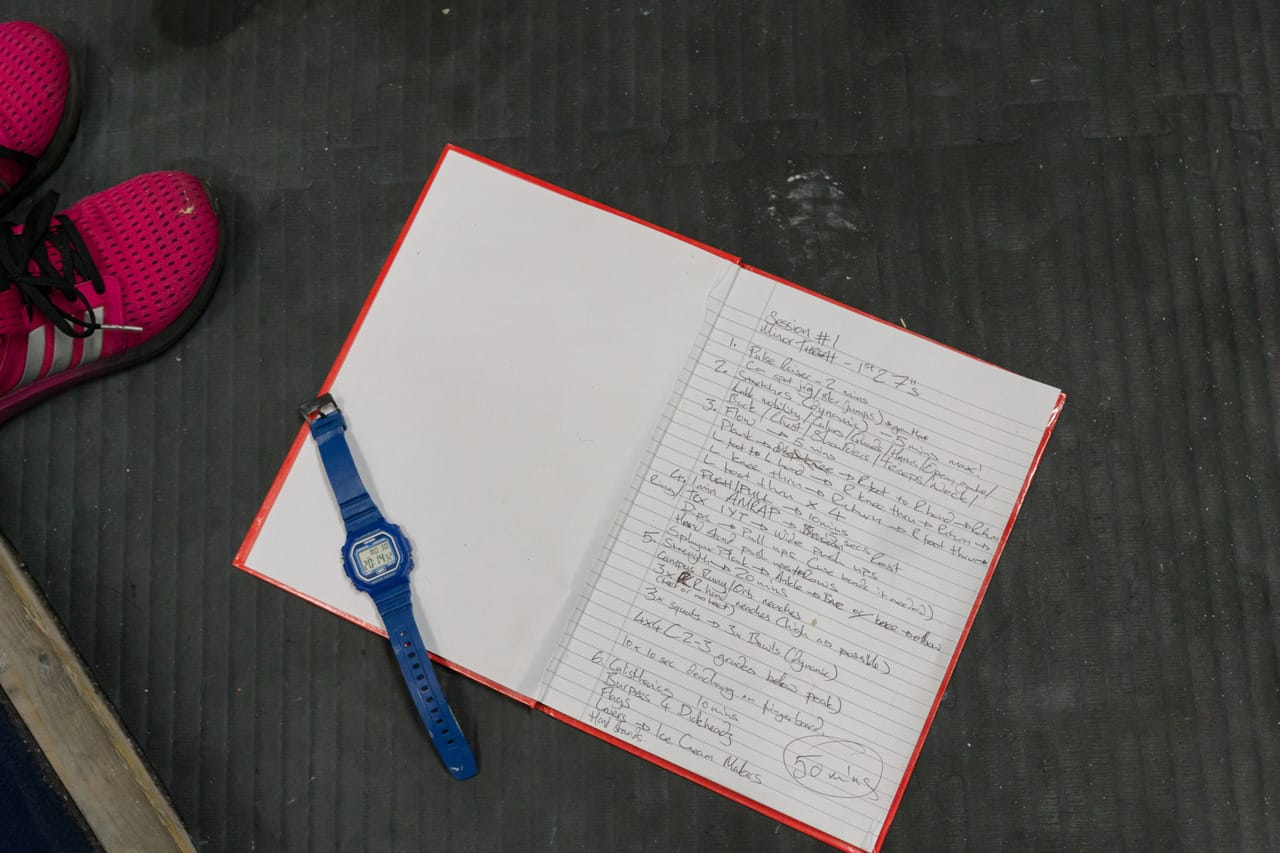 Session #1
Minor Threat - 1st 2 7"s
1. Pulse Raiser - 2 mins
(on spot jog/star jumps) together
2. Stretches (dynamic) - 5 mins max!
mobility/Calves/Glutes/Hams/Open gate/
Back/Chest/Shoulders/Triceps/Neck/
3. Flow → 5 mins
Plank → → R foot to R hand → Return
L foot to L hand → R knee thru → Return →
L knee thru → Return → R foot thru →
L foot thru × 4
4. PUSH/PULL → 10mins
1 min AMRAP → 15 secs Rest
Rings/TRX IYT → Wide push ups
Dips → Pull ups (use bands if needed)
Hand stand push ups →
Plank → Ankle → or knee → elbow
5. Strength → 20 mins
Campus Rung/Orb reaches
3x R hand reaches (high as possible)
(feet or no feet)
3x squats → 3x Bowls (dynamic)
4x4 (2-3 grades below peak)
10 x 10 sec deadhang on fingerboard
6. Calisthenics 10 mins
Burpees 4 Dickheadz
Flags
Levers → Ice Cream Makers
Hand stands.
50 mins
20:14 32